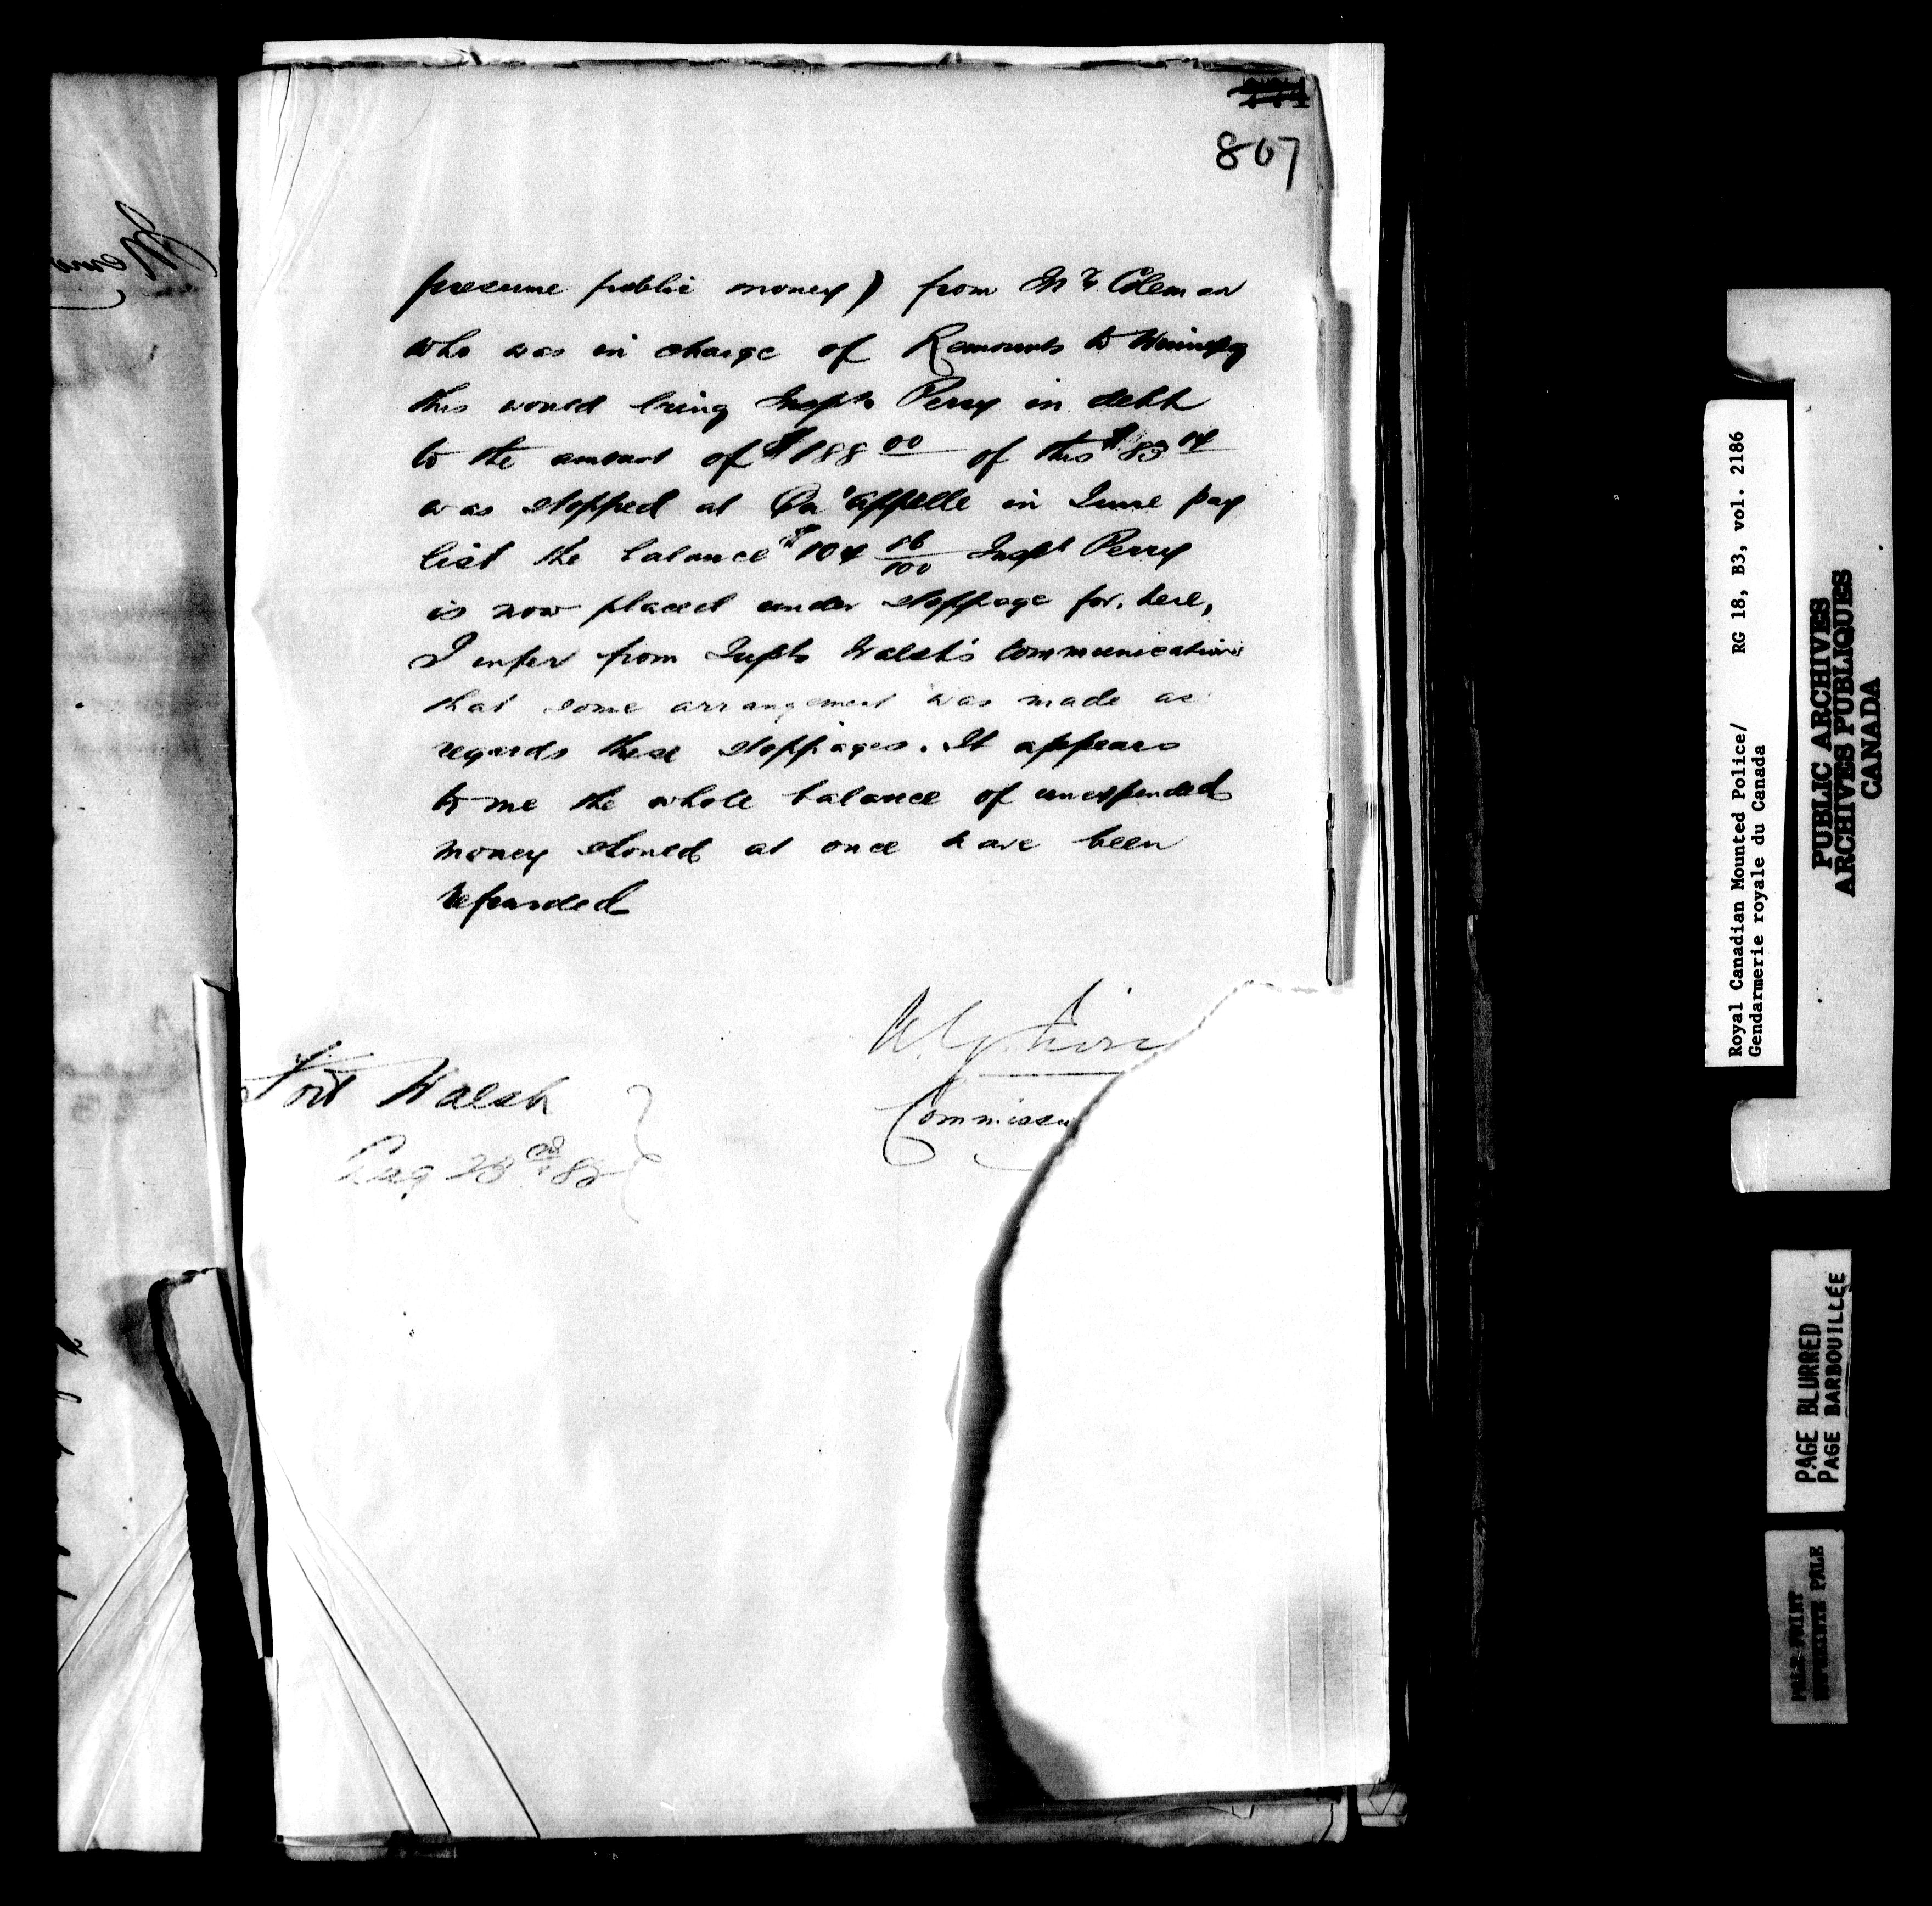 867
presume public money) from Mr. Coleman
who was in charge of Remounts to Winnipeg
this would bring Inspt. Perry in debt
to the amount of $188 00 of this $83 14
was stopped at Qu'appelle in June pay
list the balance $104 86/100 Inspt Perry
is now placed under stoppage for, here,
I infer from Supt. Walsh's Communication
that some arrangement was made as
regards these stoppages. It appears
to me the whole balance of unexpended
money should at once have been
refunded
Commissi
Fort Walsh
Aug 28
Royal Canadian Mounted Police/ RG 18, B3, vol. 2186
Gendarmerie royale du Canada
PUBLIC ARCHIVES
ARCHIVES PUBLIQUES
CANADA
PAGE BLURRED
PAGE BARBOUILLÉE
PALE PRINT
PALE